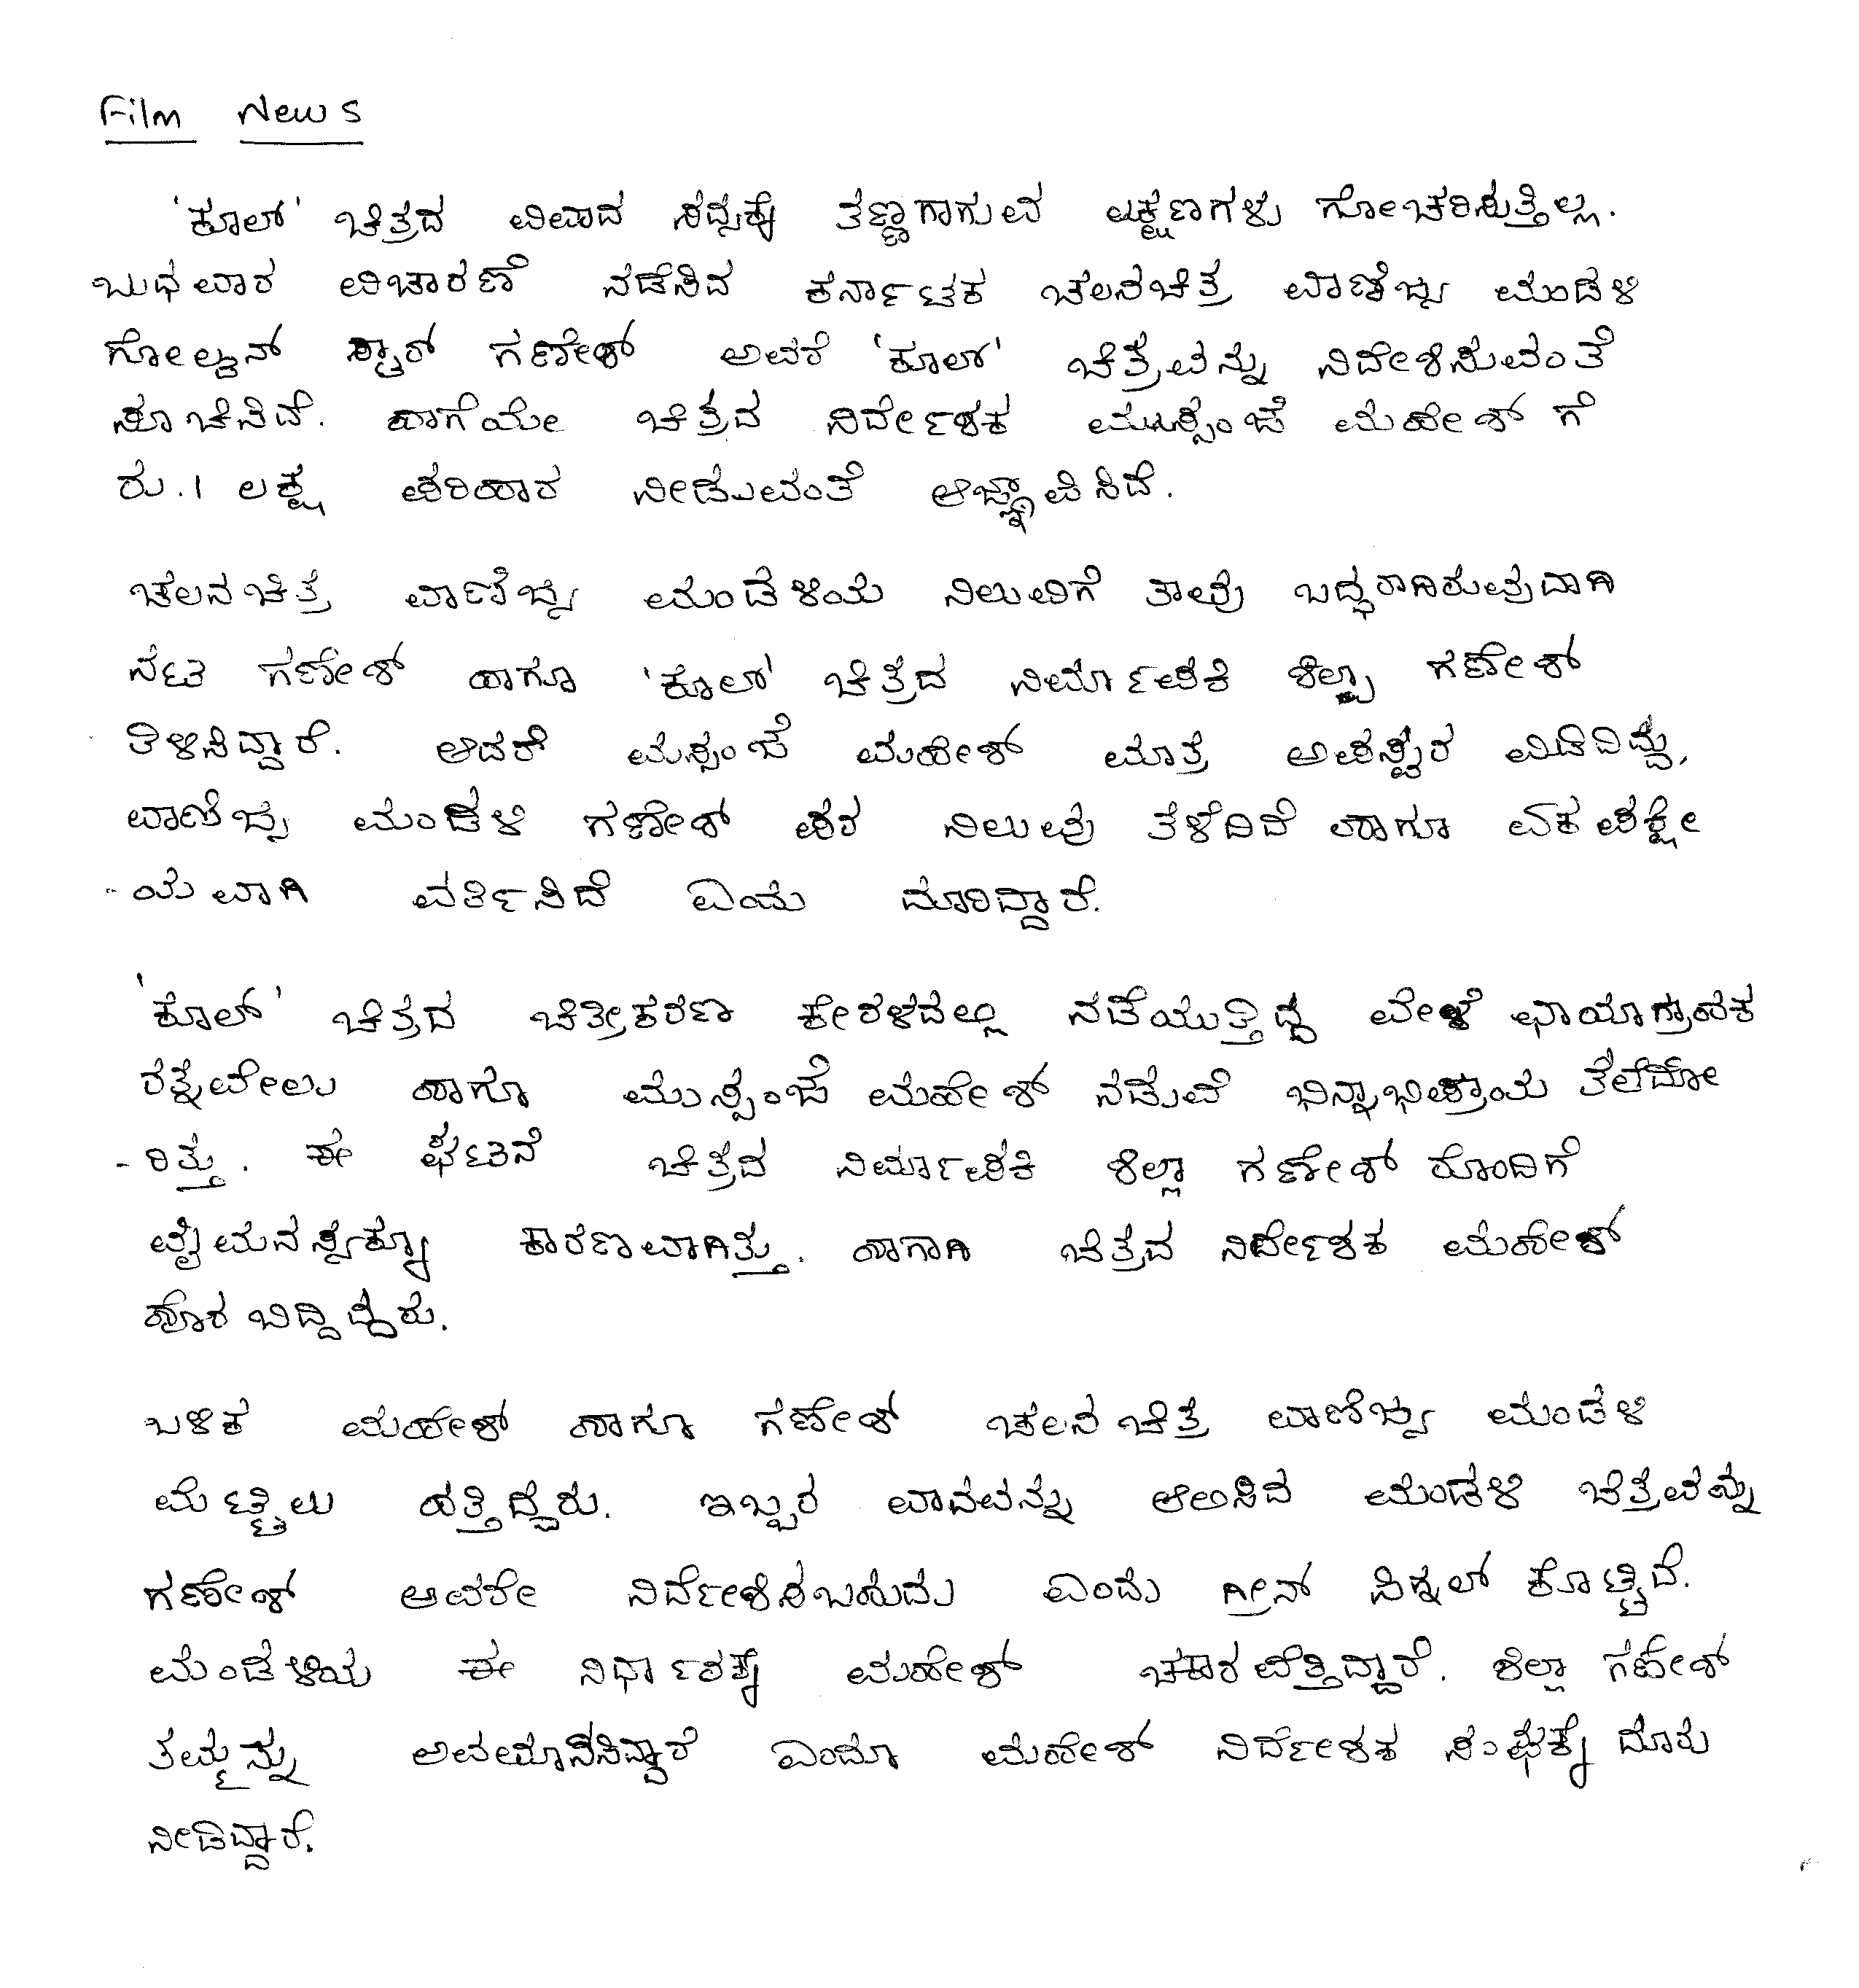 Film News
'ಕೂಲ್' ಚಿತ್ರದ ವಿವಾದ ಸದ್ಯಕ್ಕೆ ತಣ್ಣಗಾಗುವ ಲಕ್ಷಣಗಳು ಗೋಚರಿಸುತ್ತಿಲ್ಲ.
ಬುಧವಾರ ವಿಚಾರಣೆ ನಡೆಸಿದ ಕರ್ನಾಟಕ ಚಲನಚಿತ್ರ ವಾಣಿಜ್ಯ ಮಂಡಳಿ
ಗೋಲ್ಡನ್ ಸ್ಟಾರ್ ಗಣೇಶ್ ಅವರೆ 'ಕೂಲ್' ಚಿತ್ರವನ್ನು ನಿದೇಶಿಸುವಂತೆ
ಸೂಚಿಸಿದೆ. ಹಾಗೆಯೇ ಚಿತ್ರದ ನಿರ್ದೇಶಕ ಮುಸ್ಸಂಜೆ ಮಹೇಶ್ ಗೆ
ರು.1 ಲಕ್ಷ ಪರಿಹಾರ ನೀಡುವಂತೆ ಆಜ್ಞಾಪಿಸಿದೆ.
ಚಲನಚಿತ್ರ ವಾಣಿಜ್ಯ ಮಂಡಳಿಯ ನಿಲುವಿಗೆ ತಾವು ಬದ್ಧರಾಗಿರುವುದಾಗಿ
ನಟ ಗಣೇಶ್ ಹಾಗೂ 'ಕೂಲ್' ಚಿತ್ರದ ನಿರ್ಮಾಪಕಿ ಶಿಲ್ಪಾ ಗಣೇಶ್
ತಿಳಿಸಿದ್ದಾರೆ. ಆದರೆ ಮಸ್ಸಂಜೆ ಮಹೇಶ್ ಮಾತ್ರ ಅಪಸ್ವರ ಮಿಡಿದಿದ್ದು,
ವಾಣಿಜ್ಯ ಮಂಡಳಿ ಗಣೇಶ್ ಪರ ನಿಲುವು ತಳೆದಿದೆ ಹಾಗೂ ಏಕಪಕ್ಷೀ
-ಯವಾಗಿ ವರ್ತಿಸಿದೆ ಎಂದು ದೂರಿದ್ದಾರೆ.
'ಕೂಲ್' ಚಿತ್ರದ ಚಿತ್ರೀಕರಣ ಕೇರಳದಲ್ಲಿ ನಡೆಯುತ್ತಿದ್ದ ವೇಳೆ ಛಾಯಾಗ್ರಾಹಕ
ರತ್ನವೇಲು ಹಾಗೂ ಮುಸ್ಸಂಜೆ ಮಹೇಶ್ ನಡುವೆ ಭಿನ್ನಾಭಿಪ್ರಾಯ ತಲೆದೋ
-ರಿತ್ತು. ಈ ಘಟನೆ ಚಿತ್ರದ ನಿರ್ಮಾಪಕಿ ಶಿಲ್ಪಾ ಗಣೇಶ್ ರೊಂದಿಗೆ
ವೈಮನಸ್ಸಕ್ಕೂ ಕಾರಣವಾಗಿತ್ತು. ಹಾಗಾಗಿ ಚಿತ್ರದ ನಿರ್ದೇಶಕ ಮಹೇಶ್
ಹೊರಬಿದ್ದಿದ್ದರು.
ಬಳಿಕ ಮಹೇಶ್ ಹಾಗೂ ಗಣೇಶ್ ಚಲನಚಿತ್ರ ವಾಣಿಜ್ಯ ಮಂಡಳಿ
ಮೆಟ್ಟಿಲು ಹತ್ತಿದ್ದರು. ಇಬ್ಬರ ವಾದವನ್ನು ಆಲಿಸಿದ ಮಂಡಳಿ ಚಿತ್ರವನ್ನು
ಗಣೇಶ್ ಅವರೇ ನಿರ್ದೇಶಿಸಬಹುದು ಎಂದು ಗ್ರೀನ್ ಸಿಗ್ನಲ್ ಕೊಟ್ಟಿದೆ.
ಮಂಡಳಿಯ ಈ ನಿರ್ಧಾರಕ್ಕೆ ಮಹೇಶ್ ಚಕಾರವೆತ್ತಿದ್ದಾರೆ. ಶಿಲ್ಪಾ ಗಣೇಶ್
ತಮ್ಮನ್ನು ಅವಮಾನಿಸಿದ್ದಾರೆ ಎಂದೂ ಮಹೇಶ್ ನಿರ್ದೇಶಕ ಸಂಘಕ್ಕೆ ದೂರು
ನೀಡಿದ್ದಾರೆ.